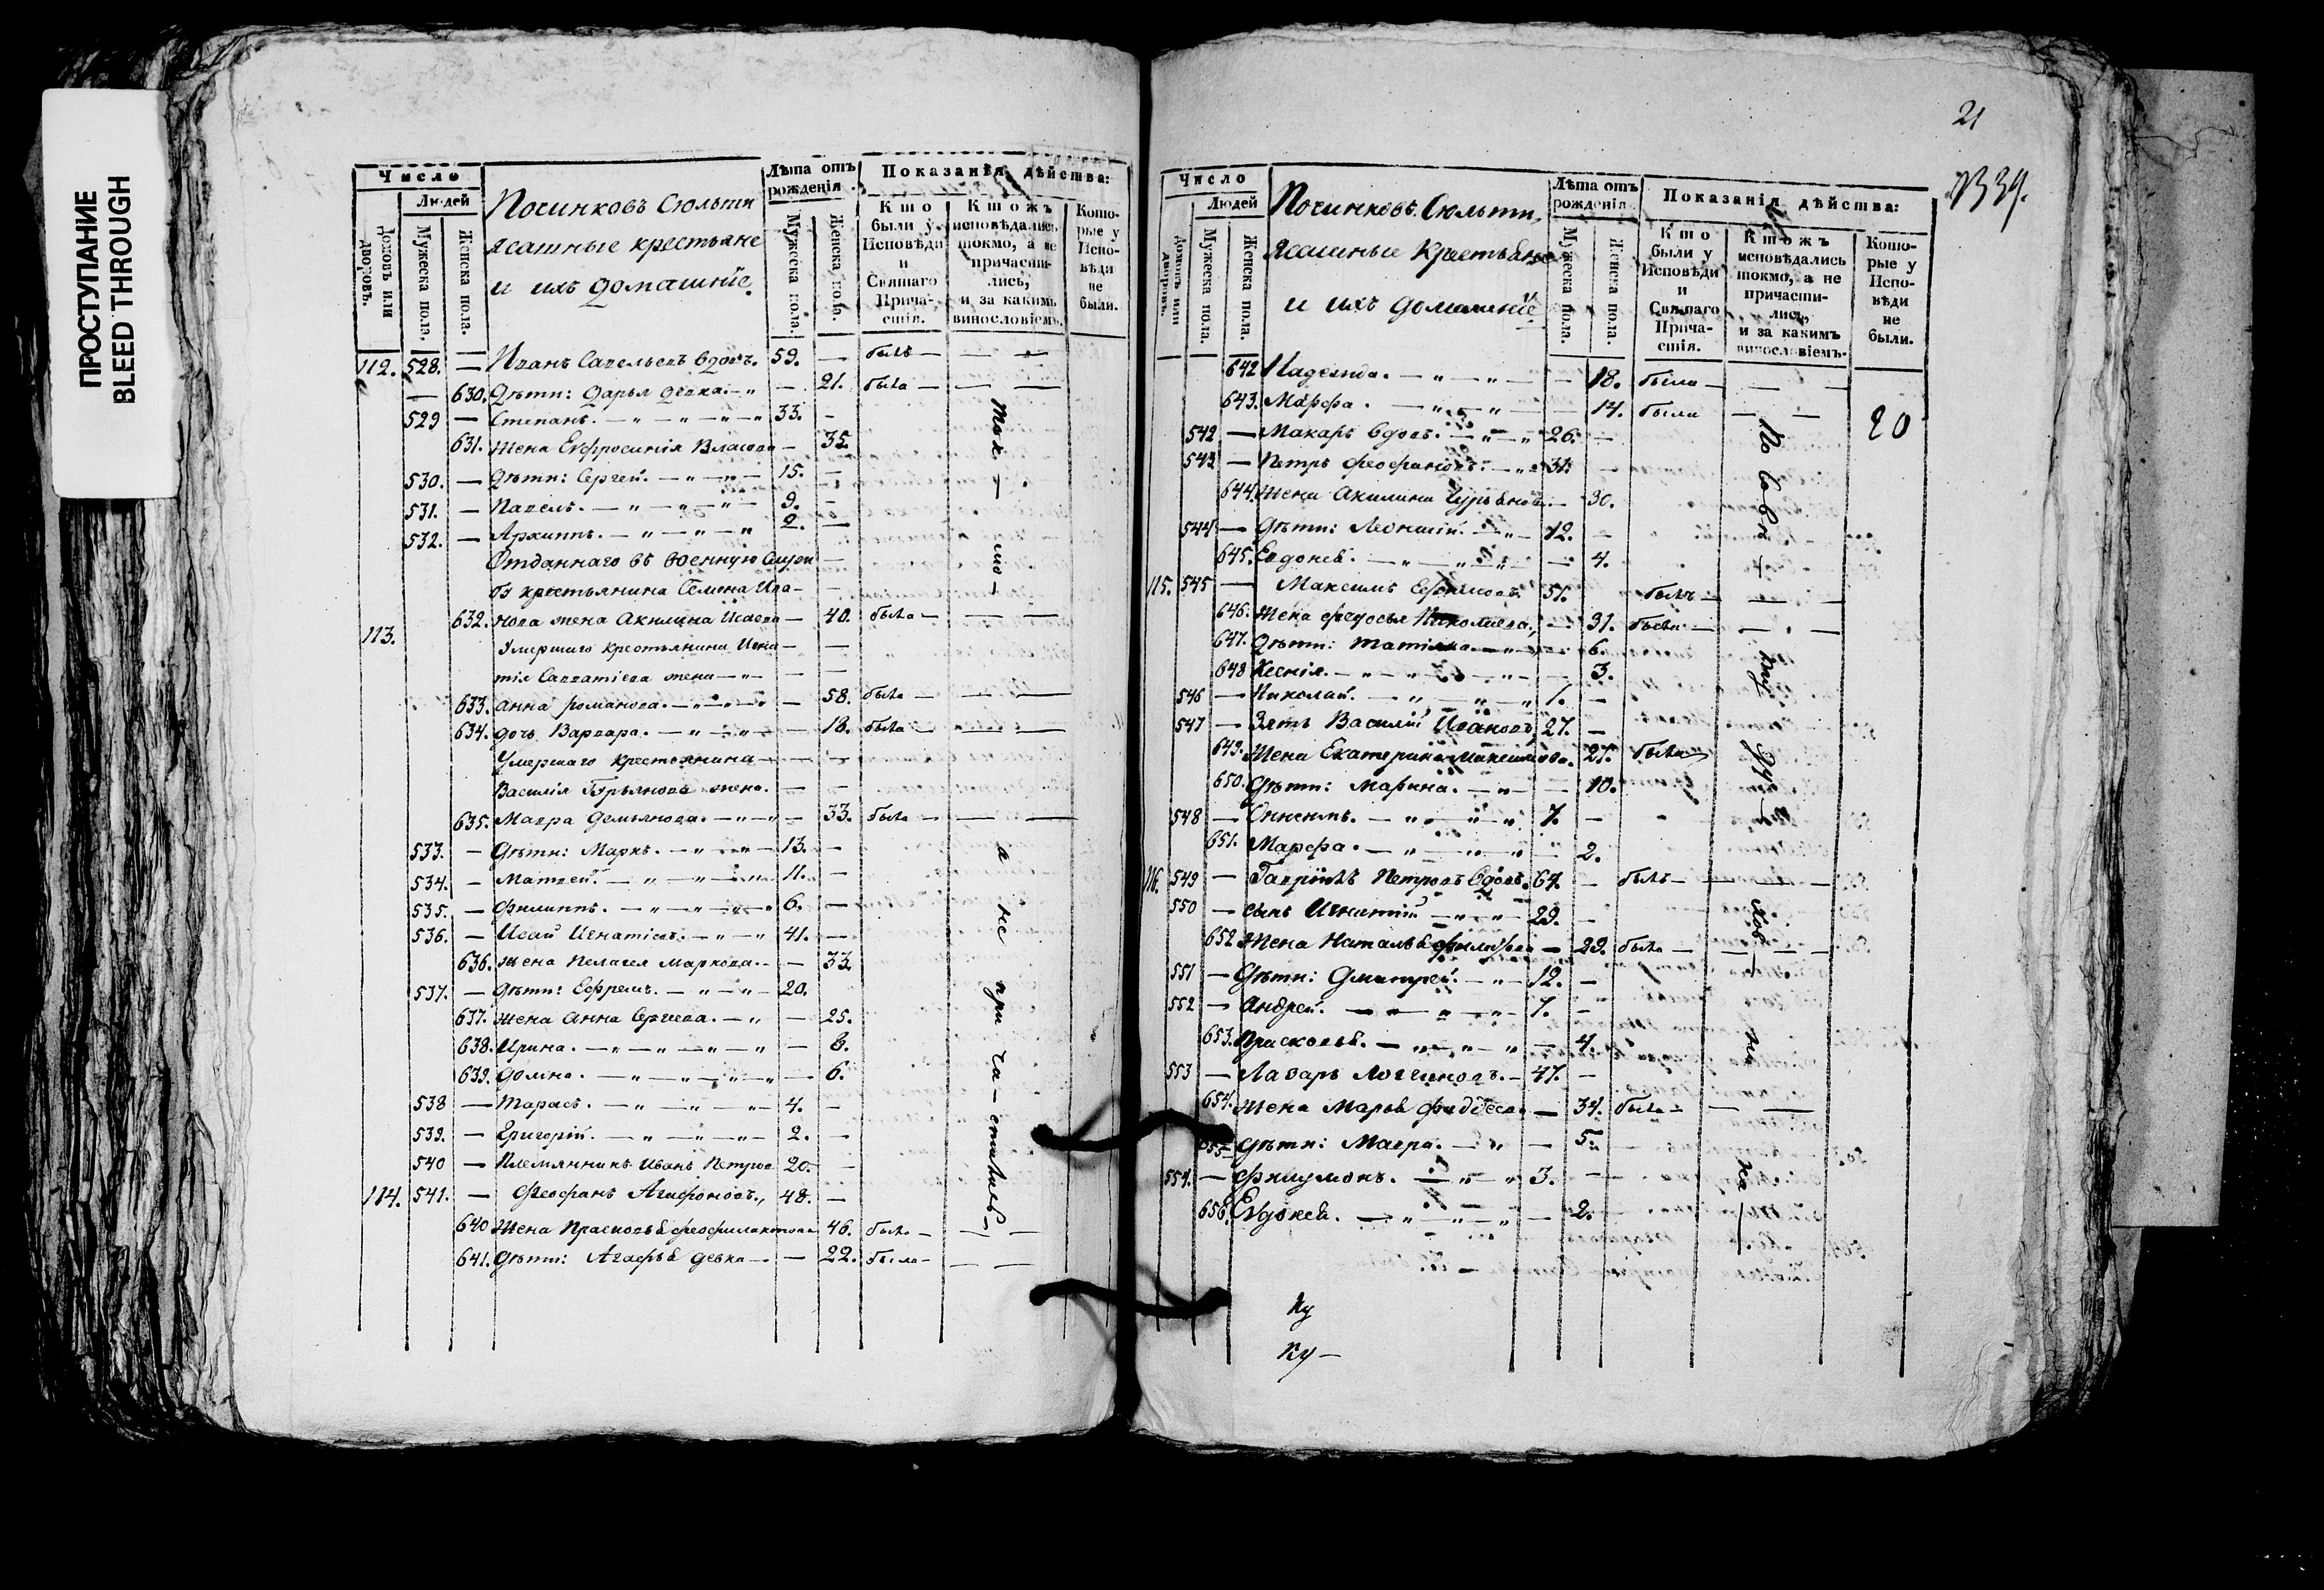 ПРОСТУПАНИЕ
BLEED THROUGH
Число
Людей
Домовъ или дворовъ.
Мужеска пола.
Женска пола.
Починковъ Сюльти
ясашные крестьяне
и ихъ домашніе
Лѣта отъ рожденія
Мужеска пола.
Женска пола.
Показанія дѣйства:
Кто были у Исповѣди и Святаго Причастія.
Ктожъ исповѣдались токмо, а не причастились, и за какимъ винословіемъ.
Которые у Исповѣди не были.
112. 528. — Иванъ Савельевъ вдовъ. 59. — былъ — — —
— 630. Дѣти: Дарья девка. — „ — 21. была — — —
529 — Степанъ. — „ — „ — „ — „ 33. —
631. жена Евфросинія Власова — 35.
530. — Дѣти: Сергей. — „ — „ — 15. —
531. — Павелъ. — „ — „ — „ — 9. —
532. — Архиппъ. — „ — „ — „ 2. —
Отданнаго въ военную служ —
бу крестьянина Семена Ива — —
632. нова жена Акилина Исаева — 40. была — — —
113. Умершаго крестьянина Игна — —
тія Савватіева жена — „ — — —
633. анна романова. — „ — „ — „ — 58. была — — —
634. дочь Варвара. — „ — „ — — 18. была — — —
Умершаго крестьянина — — —
Василія жена. — —
635. Мавра Демьянова. — „ — „ — 33. была — — —
533. — Дѣти: Маркъ. — „ — „ — 13. —
534. — Матвей. — „ — „ — „ 11. —
535. — Филиппъ. — „ — „ — „ — „ 6. —
536. — Исай Игнатіевъ. — „ — „ 41. —
636. жена Пелагея Маркова. — — 33.
537. — Дѣти: Ефремъ. — „ — „ — 20.
637. жена Анна Сергиева. — „ — 25.
638. Ирина. — „ — „ — „ — „ — 6.
639. Домна. — „ — „ — „ — „ — 6.
538 — Тарасъ. — „ — „ — „ — 4. —
539. — Григорій. — „ — „ — „ — 2. —
540 — Племянникъ Иванъ Петров 20. —
114. 541. — Феофанъ Агафоновъ. „ 48. —
640 Жена Прасковья феофилактова 46. была — — —
641. Дѣти: Агафья девка — — 22. была — — —
ток — мо — а не при ча — стились —
21
20
Число
Людей
Домовъ или дворовъ.
Мужеска пола.
Женска пола.
Починковъ Сюльти
Ясашные Крестьяне
и ихъ домашніе
Лѣта отъ рожденія
Мужеска пола.
Женска пола.
Показанія дѣйства:
Кто были у Исповѣди и Святаго Причастія.
Ктожъ исповѣдались токмо, а не причастились, и за какимъ винословіемъ.
Которые у Исповѣди не были.
642 Надежда. — „ — „ — — 18. была — — —
643. Марфа. — „ — „ — — 14. была — —
542 — Макаръ вдовъ. — „ — „ 26. —
543 — Петръ Феофановъ. — „ 31. —
644. Жена Акилина Гурьянова — 30.
544 — Дѣти: Леонтій. — „ — 12. —
645. Евдокея. — „ — „ — „ — 4.
115. 545 — Максимъ Ефимовъ. 51. былъ — — —
646. Жена федосья Николаева, — 31. была — — —
647. Дѣти: Татіяна. — „ — 6.
648 Ксенія. — „ — „ — „ — 3.
546 — Николай. — „ — „ — „ 1. —
547 — Зять Василій Ивановъ, 27. —
649. Жена Екатерина Максимова. 27. была
650. Дѣти: Марина. — „ — — 10.
548 — Онисимъ. — „ — „ — „ 7. —
651. Марфа. — „ — „ — „ — 2.
116. 549 — Гавріилъ Петровъ вдовъ. 64. — былъ — — —
550 — сынъ Игнатій — „ — „ 29. —
652 Жена Наталья — 29. была — — —
551 — Дѣти: Дмитрей. — „ — 12. —
552 — Андрей. — „ — „ — „ 7. —
653. Прасковья. — „ — „ — „ — 4.
553 — Лазарь Логгиновъ. — 47. —
654. Жена Марья — 34. была — — —
655 Дѣти: Мавра. — „ — 5.
554. — Филимонъ. — „ — „ 3. —
656. Евдокея. — „ — „ — „ — 2.
По совѣ — ту ду — хов — на — го
Ку
Ку —